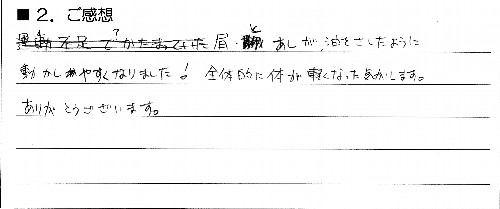 ■2．ご感想
運動不足でかたまっていた肩・と あしが、油をさしたように
動かしやすくなりました！ 全体的に体が軽くなった気がします。
ありがとうございます。